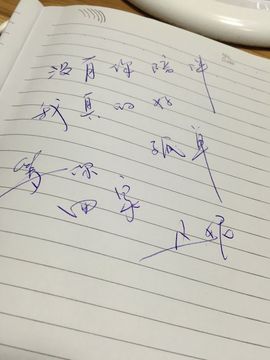 没有你陪伴
我真的好
孤单
等你
回